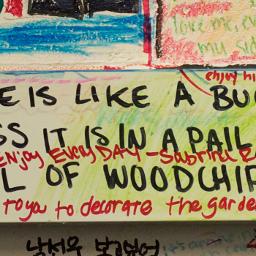 love me, ev
my sid
enjoy hi
E IS LIKE A BU
SS IT IS IN A PAIL
Enjoy EVERY DAY - Sabrina R
L OF WOODCHI
to you to decorate the garde